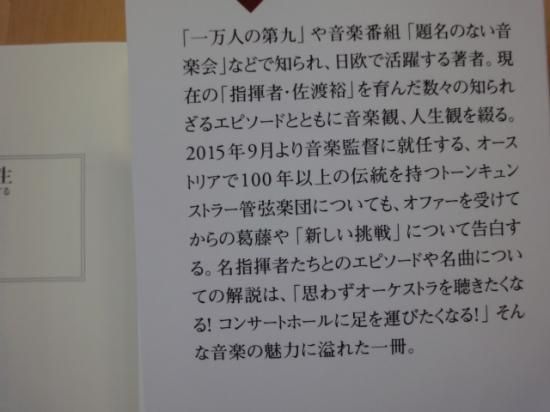 「一万人の第九」や音楽番組「題名のない音
楽会」などで知られ、日欧で活躍する著者。現
在の「指揮者・佐渡裕」を育んだ数々の知られ
ざるエピソードとともに音楽観、人生観を綴る。
2015年9月より音楽監督に就任する、オース
トリアで100年以上の伝統を持つトーンキュン
ストラー管弦楽団についても、オファーを受けて
からの葛藤や「新しい挑戦」について告白す
る。名指揮者たちとのエピソードや名曲につい
ての解説は、「思わずオーケストラを聴きたくな
る! コンサートホールに足を運びたくなる!」そん
な音楽の魅力に溢れた一冊。
する